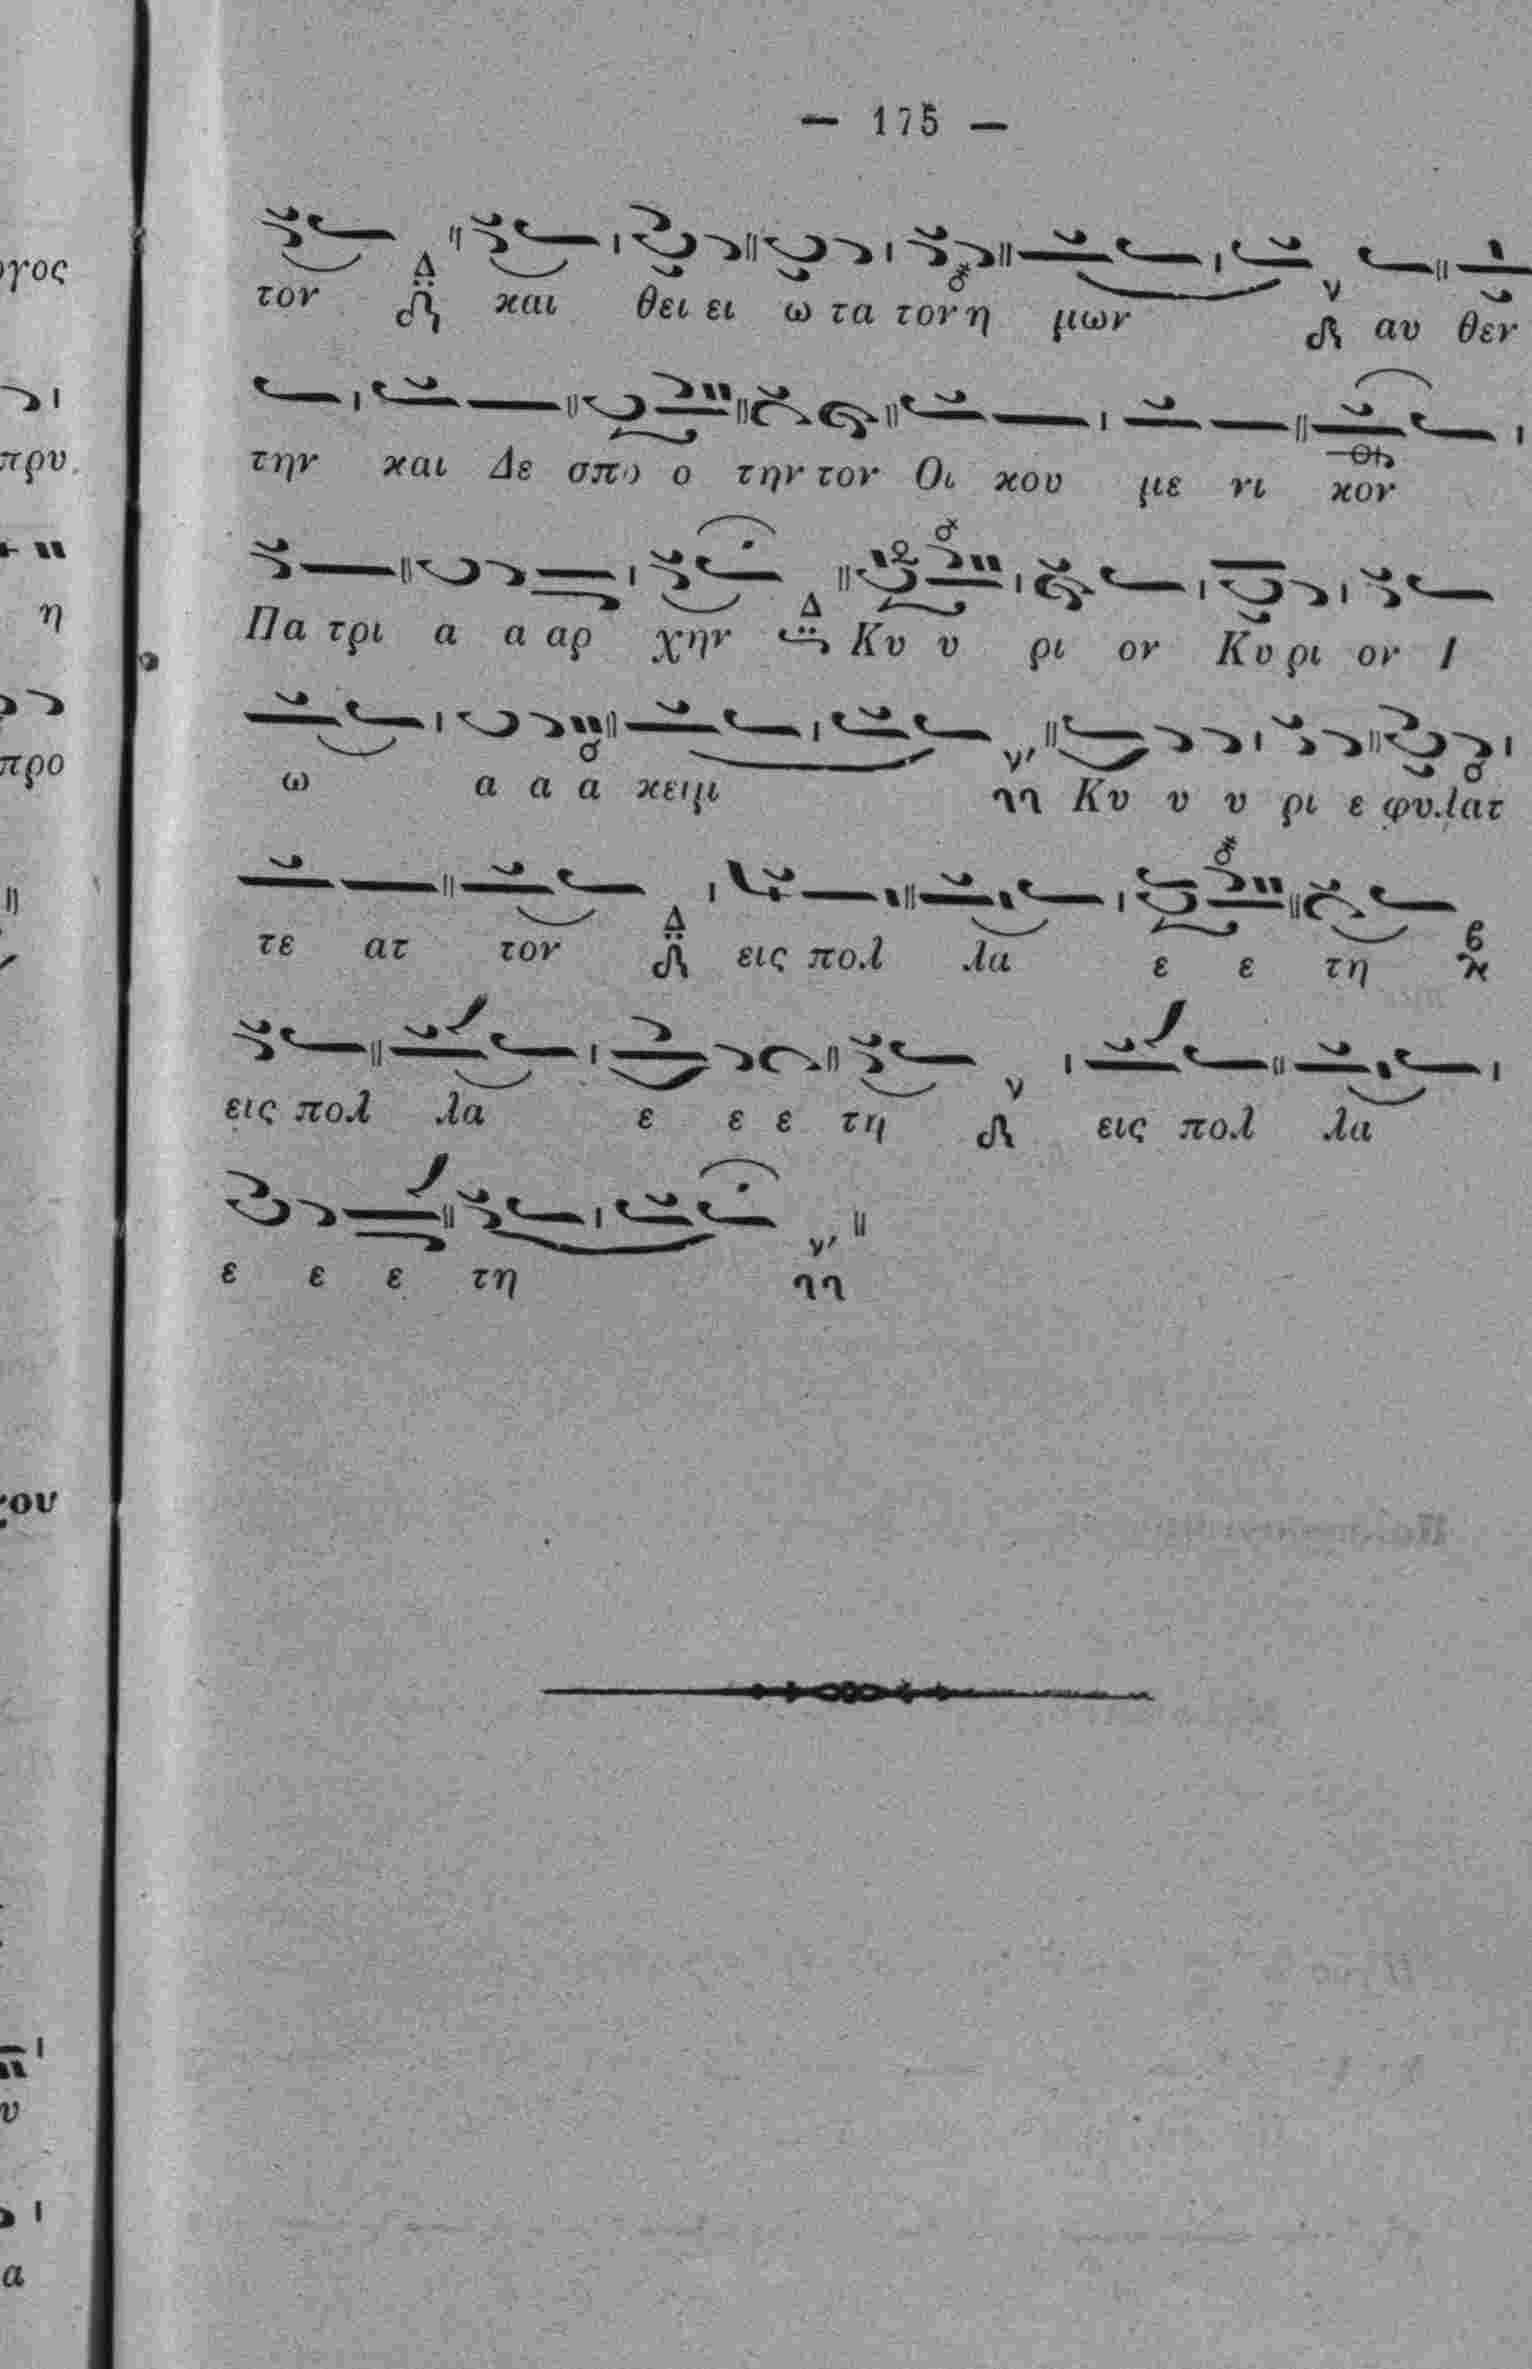 — 175 —
τον και θει ει ω τα τον η μων αυ θεν
την και Δε σπο ο την τον Οι κου με νι κον
Πα τρι α α αρ χην Κυ υ ρι ον Κυ ρι ον Ι
ω α α α κειμ Κυ υ υ ρι ε φυλατ
τε ατ τον εις πολ λα ε ε τη
εις πολ λα ε ε ε τη εις πολ λα
ε ε ε τη